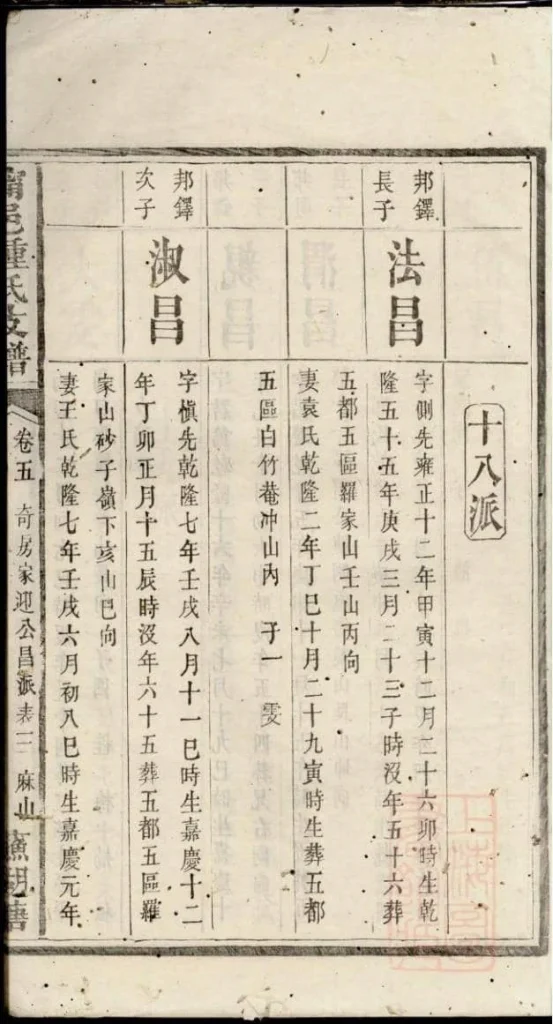 十八派
邦鐸
長子
法昌
字側先雍正十二年甲寅十二月二十六卯時生乾
隆五十五年庚戌三月二十三子時沒年五十六葬
五都五區羅家山壬山丙向
妻袁氏乾隆二年丁巳十月二十九寅時生葬五都
五區白竹菴冲山內 子一 雯
邦鐸
次子
淑昌
字愼先乾隆七年壬戌八月十一巳時生嘉慶十二
年丁卯正月十五辰時沒年六十五葬五都五區羅
家山砂子嶺下亥山巳向
妻王氏乾隆七年壬戌六月初八巳時生嘉慶元年
邑鍾氏支譜
卷五 奇房家迎公昌派表三 麻山